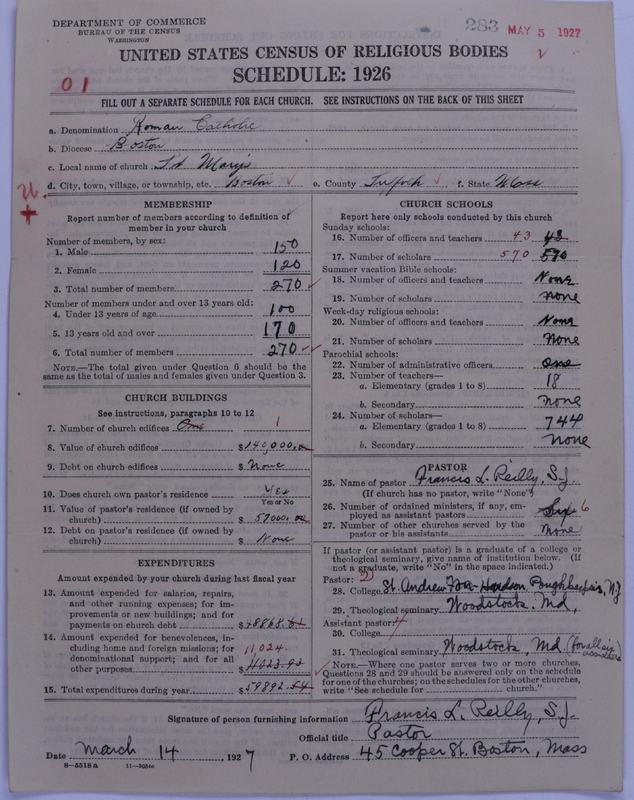 DEPARTMENT OF COMMERCE
BUREAU OF THE CENSUS
WASHINGTON
283 MAY 5 1927
UNITED STATES CENSUS OF RELIGIOUS BODIES
SCHEDULE: 1926
01
FILL OUT A SEPARATE SCHEDULE FOR EACH CHURCH. SEE INSTRUCTIONS ON THE BACK OF THIS SHEET
a. Denomination Roman Catholic
b. Diocese Boston
c. Local name of church St Mary's
d. City, town, village, or township, etc. Boston e. County Suffolk f. State Mass
MEMBERSHIP
Report number of members according to definition of member in your church
Number of members, by sex:
1. Male 150
2. Female 120
3. Total number of members 270
Number of members under and over 13 years old:
4. Under 13 years of age 100
5. 13 years old and over 170
6. Total number of members 270
NOTE.—The total given under Question 6 should be the
same as the total of males and females given under Question 3.
CHURCH BUILDINGS
See instructions, paragraphs 10 to 12
7. Number of church edifices One 1
8. Value of church edifices $140,000.00
9. Debt on church edifices $ None
10. Does church own pastor's residence Yes
Yes or No
11. Value of pastor's residence (if owned by
church) $57000.00
12. Debt on pastor's residence (if owned by
church) $ None
EXPENDITURES
Amount expended by church during last fiscal year
13. Amount expended for salaries, repairs,
and other running expenses; for im-
provements or new buildings; and for
payments on church debt $48868.
14. Amount expended for benevolences, in-
cluding home and foreign missions; for
denominational support; and for all
other purposes 11,024 $11023.92
15. Total expenditures during year $59892.54
CHURCH SCHOOLS
Report here only schools conducted by this church
Sunday schools:
16. Number of officers and teachers 43 43
17. Number of scholars 570 570
Summer vacation Bible schools:
18. Number of officers and teachers None
19. Number of scholars none
Week-day religious schools:
20. Number of officers and teachers None
21. Number of scholars None
Parochial schools:
22. Number of administrative officers one
23. Number of teachers—
a. Elementary (grades 1 to 8) 18
b. Secondary none
24. Number of scholars—
a. Elementary (grades 1 to 8) 744
b. Secondary None
PASTOR
25. Name of pastor Francis L. Reilly, S.J
(If church has no pastor, write "None")
26. Number of ordained ministers, if any, em-
ployed as assistant pastors Six 6
27. Number of other churches served by the
pastor or his assistants None
If pastor (or assistant pastor) is a graduate of a college or
theological seminary, give name of institution below. (If
not a graduate, write "No" in the space indicated.)
Pastor:
28. College St. Andrew on Hudson Poughkeepsie, N.Y
29. Theological seminary Woodstock. Md,
Assistant pastor:
30. College
31. Theological seminary Woodstock, Md (for all six
NOTE.—Where one pastor serves two or more churches,
Questions 28 and 29 should be answered only on the schedule
for one of the churches; on the schedules for the other churches,
write "See schedule for church."
Signature of person furnishing information Francis L. Reilly, S.J.
Official title Pastor
Date March 14, 1927 P. O. Address 45 Cooper St. Boston, Mass
8—5518a